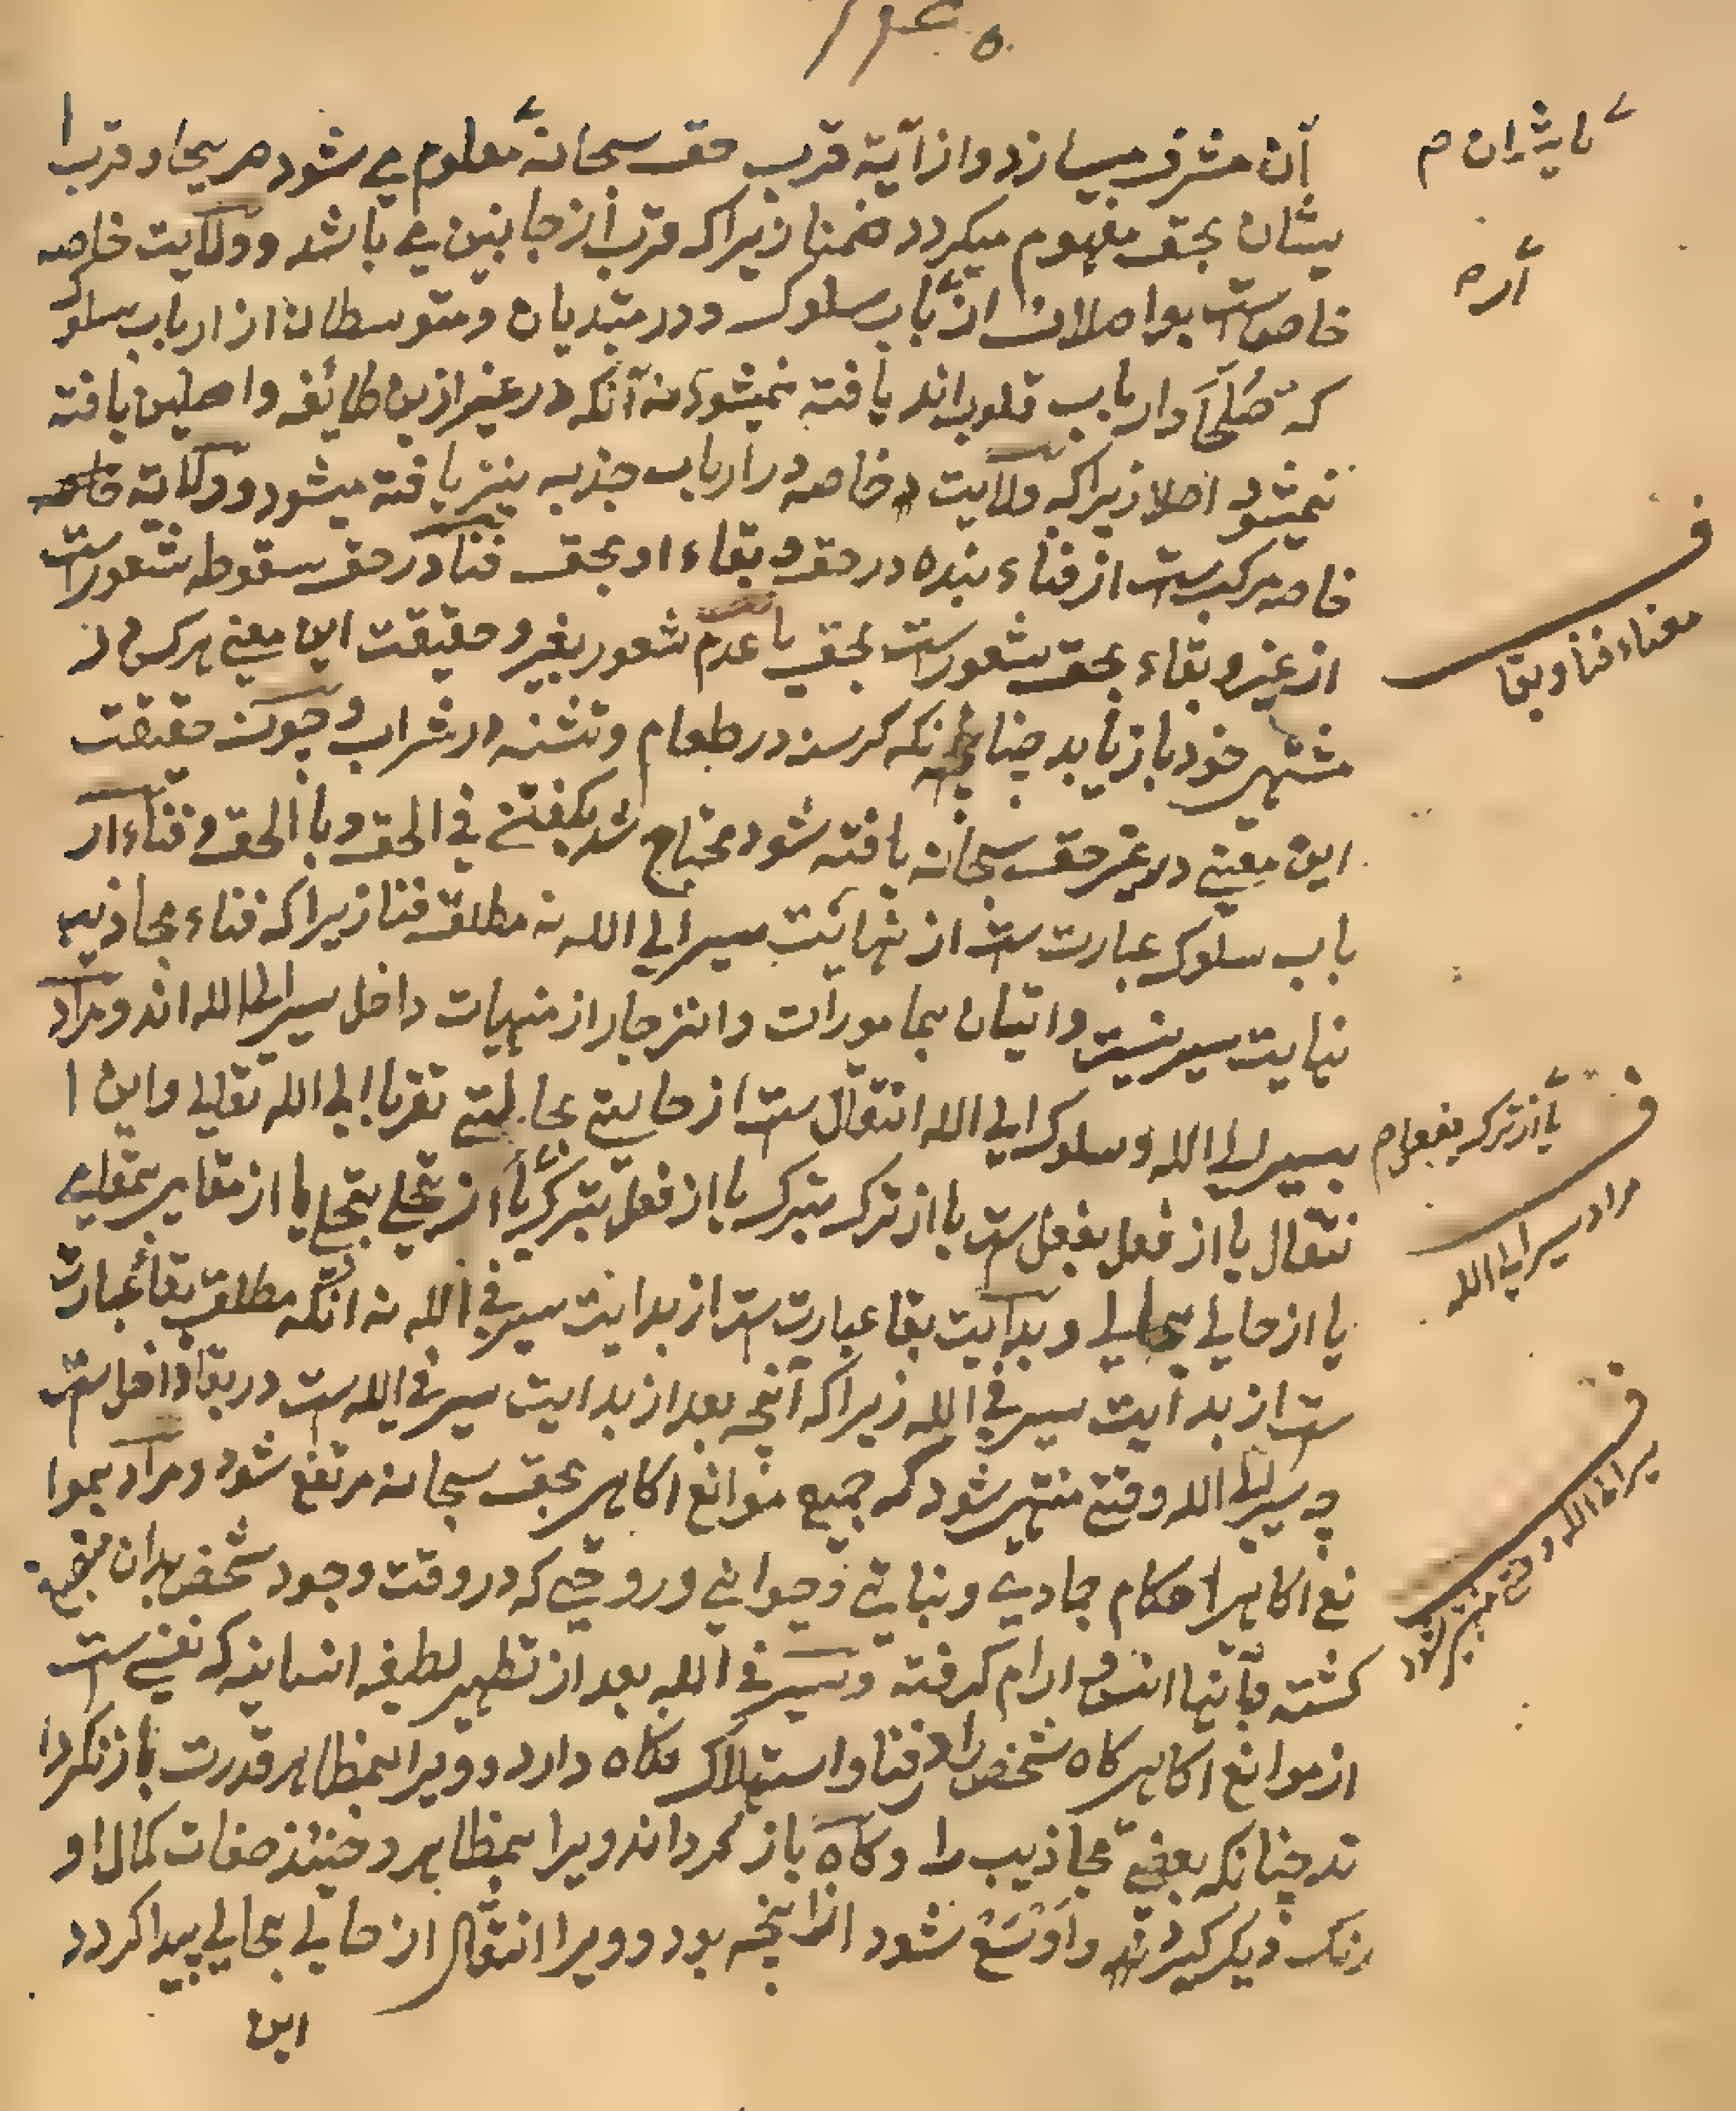 آن مشرف میسازد و از آیة قرب حق سبحانه معلوم می شود صریحا و قرب ا
یشان بحق مفهوم میکردد ضمنا زیرا که قرب از جانبین می باشد و ولایت خاصه
خاص است بواصلان از باب سلوک و در مبتدیان و متوسطان از ارباب سلوک
که صلحا و ارباب قلوب اند یافته نمیشود نه آنکه در غیر ازین طائفه واصلین یافته
نمیشود اصلا زیرا که ولایت خاصه در ارباب جذبه نیز یافته میشود و ولایة خاصه
خاصه مرکب ست از فناء بنده در حق و بقاء او بحق فنا در حق سقوط شعور است
از غیر و بقاء بحق شعور است بحق با عدم شعور بغیر و حقیقت این معنی هر کس در
مشتهی خود باز یابد چنانکه کرسنه در طعام و تشنه در شراب و چون حقیقت
این معنی در غیر حق سبحانه یافته شود محتاج شد بکفتن فی الحق و بالحق و فناء ار
باب سلوک عبارت ست از نهایت سیر الی الله نه مطلق فنا زیرا که فناء مجاذیب
نهایت سیر نیست و اتیان بمامورات و انزجار از منهیات داخل سیر الی الله اند و مراد
بسیر الی الله و سلوک الی الله انتقال ست از حالتی بحالتی تقربا الی الله تعالی و این ا
نتقال یا از فعل بفعل ست یا از ترک بترک یا از فعل بترک یا از تجلی بتجلی یا از مقامی بمقامی
یا از حالی بحالی و بدایت بقا عبارت ست از بدایت سیر فی الله نه آنکه مطلق بقا عبارت
ست از بدایت سیر فی الله زیرا که آنچه بعد از بدایت سیر فی الله ست در بقا داخل ست
چه سیر الی الله وقتی منتهی شود که جمیع موانع آکاهی بحق سبحانه مرتفع شود و مراد بموا
نع آکاهی احکام جمادی و نباتی و حیوانی و روحی که در وقت وجود شخص بدان منصبغ
کشته و بآنها انس و ارام کرفته و سیر فی الله بعد از تطهیر لطیفه انسانیه که نفسی ست
از موانع آکاهی کاه شخص را در فنا و استهلاک نکاه دارد و ویرا بمظاهر قدرت باز نکردا
ند چنانکه بعضی مجاذیب را و کاه باز کرداند ویرا بمظاهر و حینئذ صفات کمال او
رنک دیکر کیرد و اوسع شود ازانچه بود و ویرا انتقال از حالی بحالی پیدا کردد
این
معناء فنا و بقا
یا از ترک بفعل م
مراد سیر الی الله
سیر الی الله وقتی منتهی شود